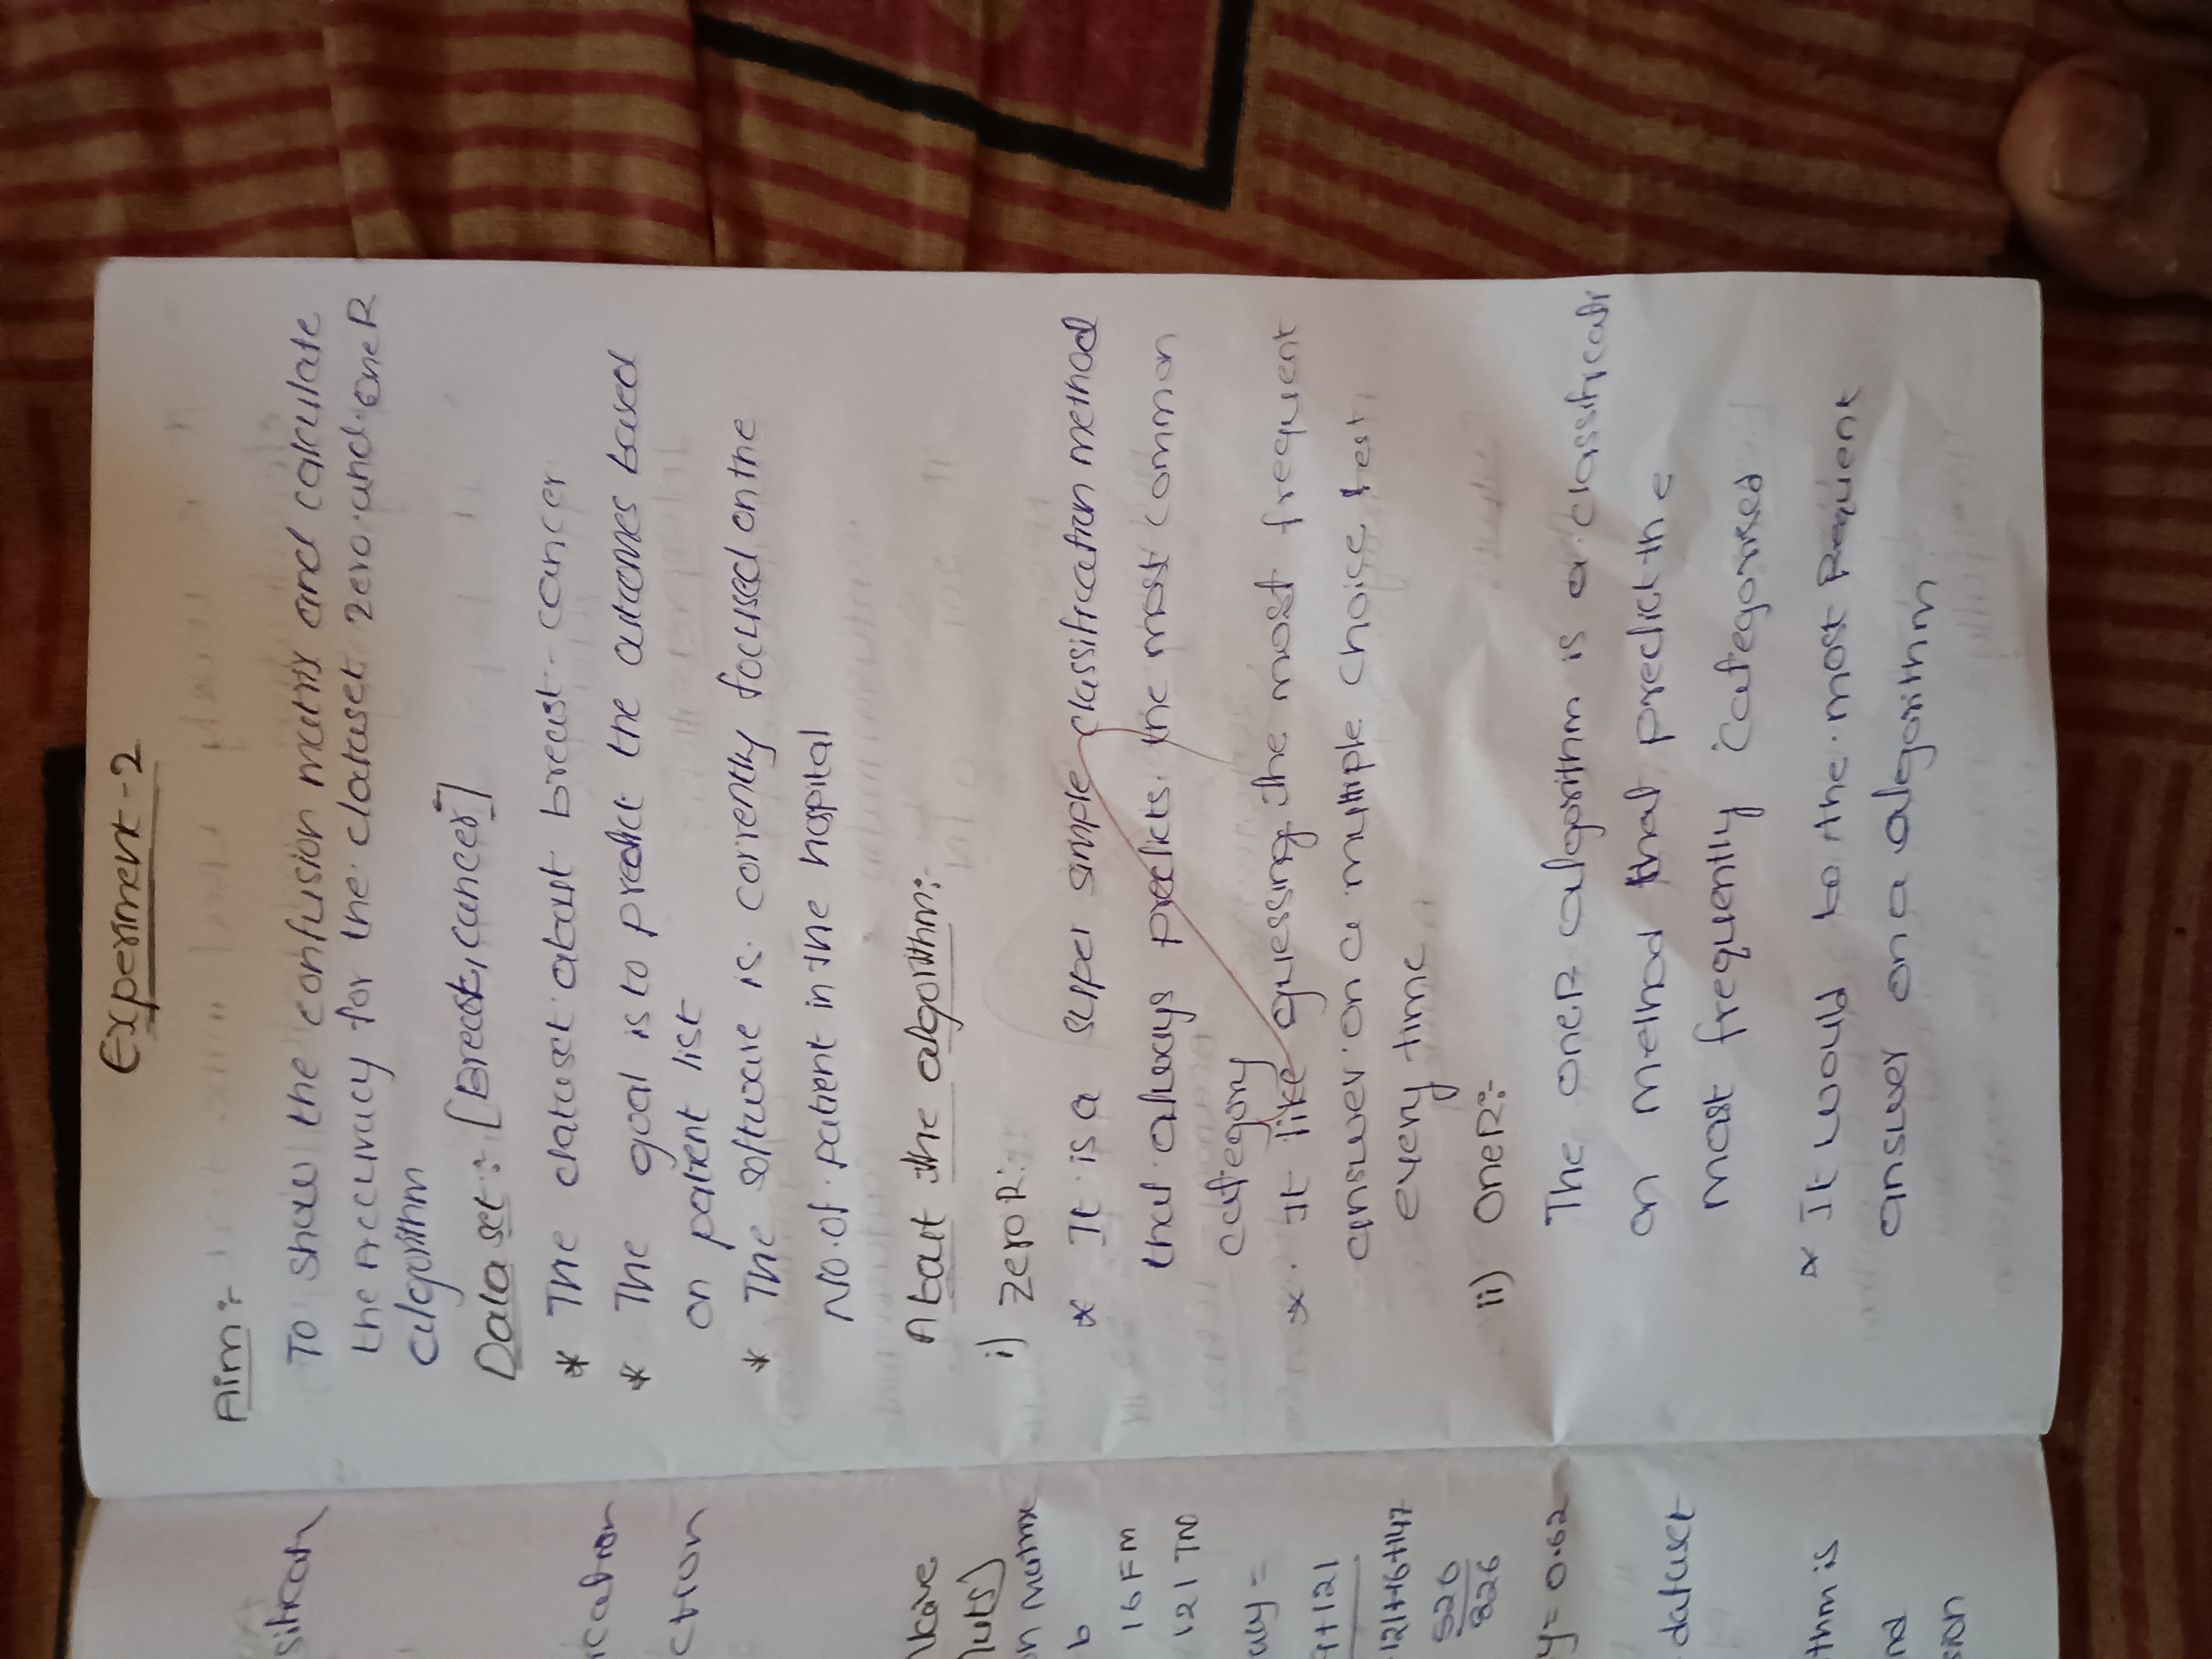 sificatn
ication
ction
Naive
on Matrix
b
16 FM
121 TN
acy =
9+121
121+16+147
526
826
y= 0.62
dataset
thm is
nd
sion
Experiment-2
Aim:-
To show the confusion matrix and calculate
the Accuracy for the dataset zero and OneR
algorithm
Data set: [Breast, cancer]
* The dataset about breast-cancer
* The goal is to predict the outcomes based
on patient list
* The software is corrently focused on the
No.of patient in the hospital
About the algorithm:-
i) ZeroR:-
* It is a super simple classification method
that always predicts the most common
category
* It like guessing the most frequent
answer on a multiple choise test,
every time
ii) OneR:-
The oneR algorithm is a classificati
on method that predict the
most frequently categorised
* It would to the most Requent
answer on a algorithm